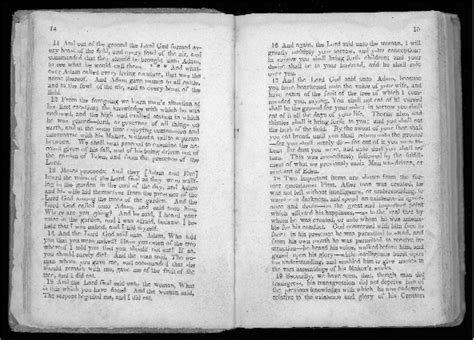 14
11 And out of the ground the Lord God formed every
beast of the field, and every fowl of the air, and
commanded that they should be brought unto Adam,
to see what he would call them. * * * And whatever
Adam called every living creature, that was the
name thereof. And Adam gave names to all cattle,
and to the fowl of the air, and to every beast of the
field.
12 From the foregoing we learn man's situation at
his first creation; the knowledge with which he was
endowed, and the high and exalted station in which
he was placed—lord, or governor of all things on
earth, and at the same time enjoying communion and
intercourse with his Maker, without a vail to separate
between. We will next proceed to examine the account
given of his fall, and of his being driven out of
the garden of Eden, and from the presence of the
Lord.
13 Moses proceeds: And they [Adam and Eve]
heard the voice of the Lord God as they were walking
in the garden in the cool of the day; and Adam
and his wife hid themselves from the presence of the
Lord God among the trees of the garden. And the
Lord God called unto Adam, and said unto him,
Where are you going? And he said, I heard your
voice in the garden, and I was afraid, because I beheld
that I was naked, and I hid myself.
14 And the Lord God said unto Adam, Who told
you that you was naked? Have you eaten of the tree
whereof I told you that you should not eat? If so,
you should surely die? And the man said, The woman
whom you gave me, and commanded that she
should remain with me, gave me of the fruit of the
tree, and I did eat.
15 And the Lord God said unto the woman, What
is this which you have done? And the woman said,
The serpent beguiled me, and I did eat.
15
16 And again, the Lord said unto the woman, I will
greatly multiply your sorrow, and your conception:
in sorrow you shall bring forth children; and your
desire shall be to your husband, and he shall rule
over you.
17 And the Lord God said unto Adam, because
you have hearkened unto the voice of your wife, and
have eaten of the fruit of the tree of which I commanded
you, saying, You shall not eat of it: cursed
shall be the ground for your sake; in sorrow you shall
eat of it all the days of your life. Thorns also, and
thistles shall it bring forth to you: and you shall eat
the herb of the field. By the sweat of your face shall
you eat bread, until you shall return unto the ground
—for you shall surely die—for out of it you were
taken; for dust you were, and unto dust you shall
return. This was immediately followed by the fulfillment
of what we previously said: Man was driven, or
sent out of Eden.
18 Two important items are shown from the former
quotations: First, After man was created, he
was not left without intelligence, or understanding, to
wander in darkness, and spend an existence in ignorance
and doubt—on the great and important point
which effected his happiness,—as to the real fact by
whom he was created, or unto whom he was amenable
for his conduct. God conversed with him face to
face: in his presence he was permitted to stand, and
from his own mouth he was permitted to receive instruction—
he heard his voice, walked before him, and
gazed upon his glory—while intelligence burst upon
his understanding, and enabled him to give names to
the vast assemblage of his Maker's works.
19 Secondly, we have seen, that, though man did
transgress, his transgression did not deprive him of
the previous knowledge with which he was endowed,
relative to the existence and glory of his Creator;